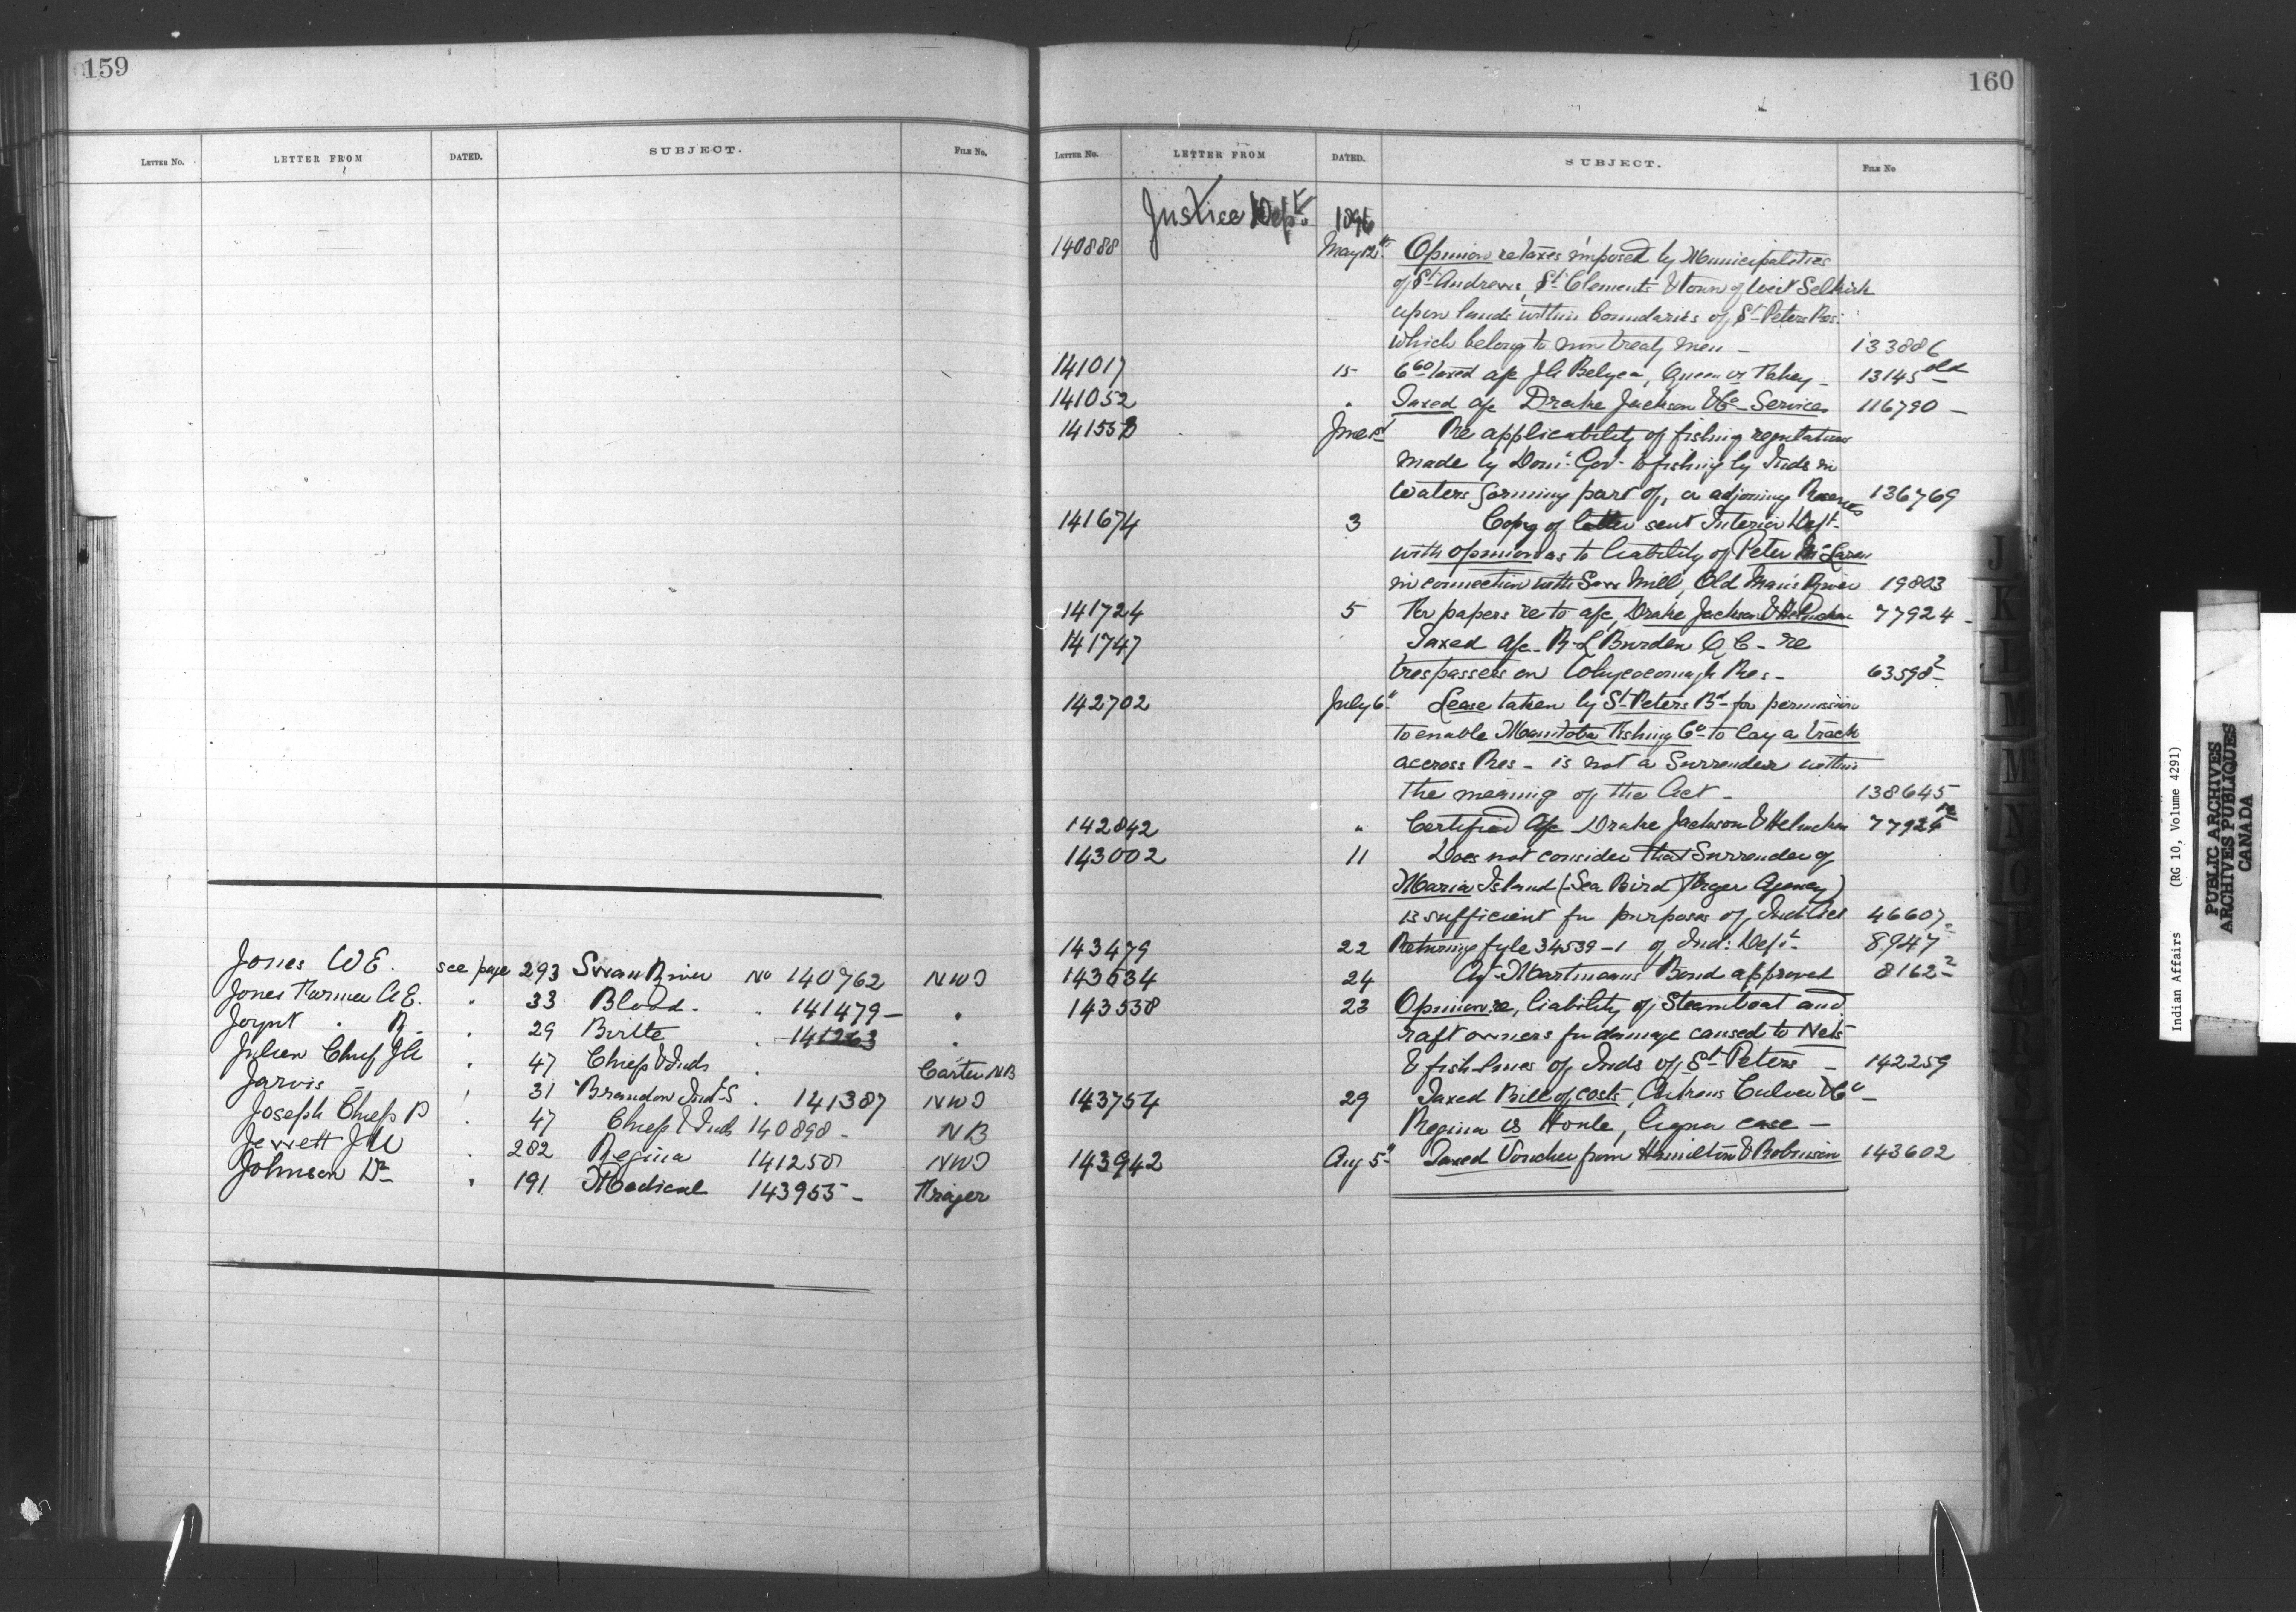 159
LETTER NO. LETTER FROM DATED. SUBJECT. FILE No.
Jones W E. see page 293 Swan River No 140762 NWT
Jones Farmer A E. " 33 Blood - " 141479 - "
Joynt " R - " 29 Birtle " 141263 "
Julien Chief J A " 47 Chiefs & Inds " Carter NB
Jarvis - " 31 Brandon Ind. S " 141387 NWT
Joseph Chief P " 47 Chiefs & Inds 140898 - NB
Jerrett J W " 282 Regina 141250 NWT
Johnson Dr " 191 Medical 143955 - Fraser
160
LETTER No. LETTER FROM DATED. SUBJECT. FILE No
Justice Dept. 1896
140888 May 12th Opinion re taxes imposed by Municipalities
of St Andrews, St Clements & town of West Selkirk
upon lands within boundaries of St Peters Res:
which belong to non treaty men - 133886
141017 15 6 60 taxed a/c J A Belyea, Queen vs Fahey - 13145 old
141052 " Taxed a/c Drake Jackson & Co - Services 116790 -
June 1st Re applicability of fishing regulations
made by Dom: Gov. to fishing by Inds in
Waters forming part of, or adjoining Reserves 136769
141674 3 Copy of letter sent Interior Dept.
with opinion as to liability of Peter McLaren
in connection with Saw Mill, Old Man's River 19803
141724 5 For papers re to a/c, Drake Jackson & Helmcken 77924 -
141747 " Taxed a/c - R L Burden Q C - re
trespassers on Whycocomagh Res - 63598 2
142702 July 6th Lease taken by St Peters Bd - for permission
to enable Manitoba Fishing Co - to lay a track
accross Res - is not a Surrender within
the meaning of the Act - 138645
142842 " Certified a/c Drake Jackson & Helmcken 77924
143002 11 Does not consider that Surrender of
Maria Island (Sea Bird) Fraser Agency)
is sufficient for purposes of Ind: Act 46607 -
143479 22 Returning fyle 34539-1 of Ind: Dept 8947
143634 24 Martineaus Bond approved 8162 2
143538 23 Opinion re, liability of Steamboat and
raft owners for damage caused to Nets
& fish-lines of Inds of St Peters - 142259
143754 29 Taxed Bill of costs, Culver & Co -
Regina vs Houle, Liquor case -
143942 Aug 5th Taxed Voucher from Hamilton & Robinson 143602
J
K
L
M
M
N
O
Indian Affairs (RG 10, Volume 4291)
PUBLIC ARCHIVES
ARCHIVES PUBLIQUES
CANADA